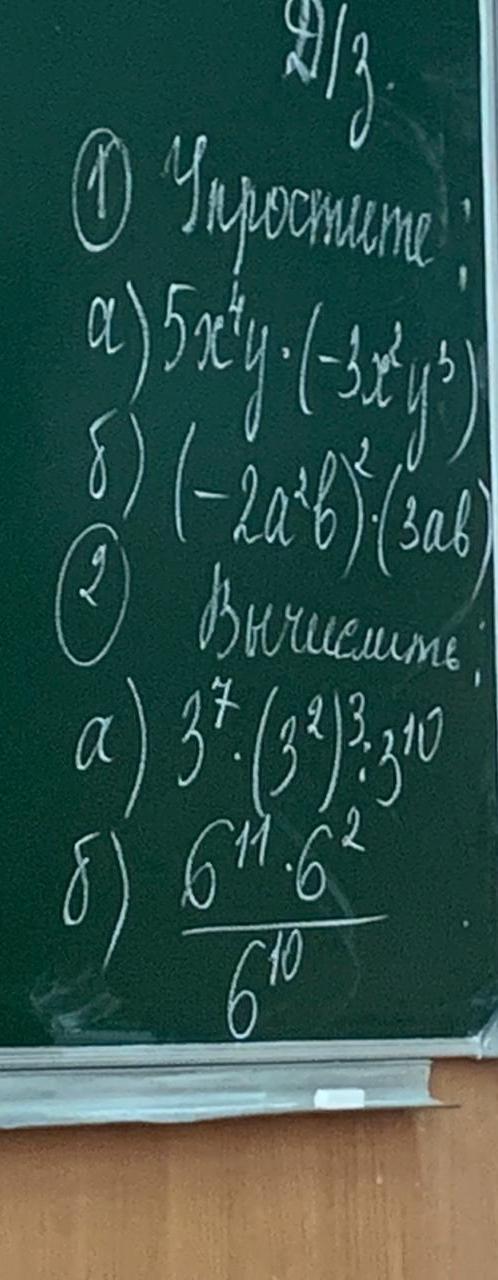 Д/з.
① Упростите:
а) 5x⁴y · (-3x²y³)
б) (-2a²b)² · (3ab)
② Вычислить:
а) 3⁷ · (3²)³ : 3¹⁰
б) 6¹¹ · 6²
6¹⁰